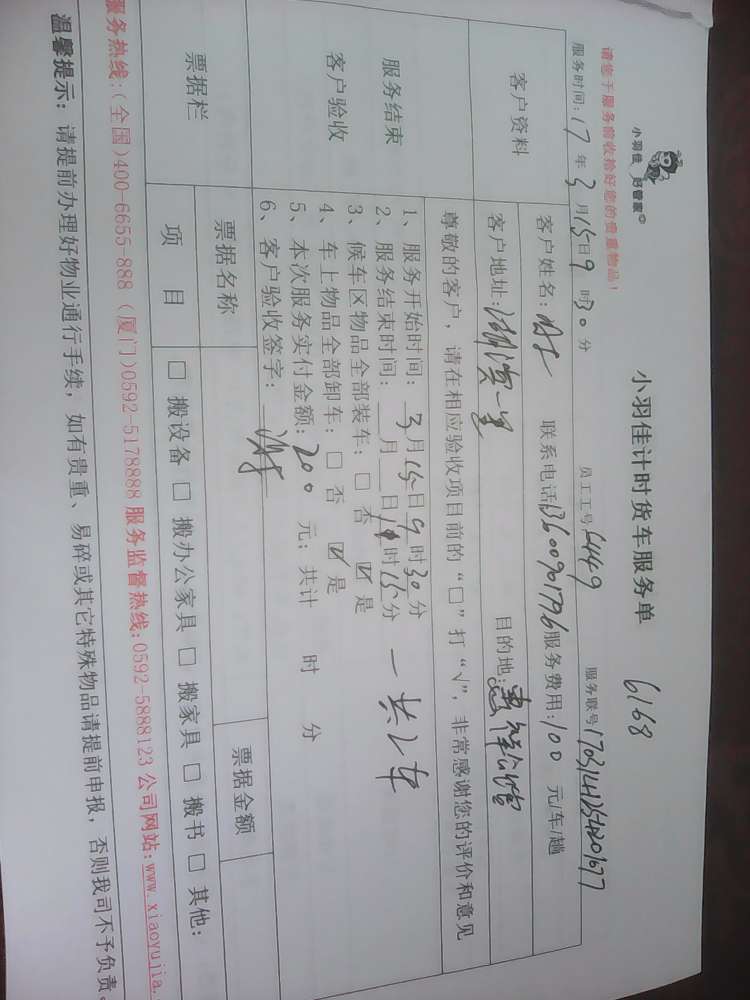 小羽佳 好管家
小羽佳计时货车服务单 6168
请您于服务前收拾好您的贵重物品！
服务时间：17年3月15日9时30分 员工工号 6449 服务联号
客户资料
客户姓名： 联系电话13600901796 服务费用：100 元/车/趟
客户地址： 目的地：
尊敬的客户，请在相应验收项目前的“□”打“√”，非常感谢您的评价和意见
服务结束
客户验收
1、服务开始时间：3月15日9时30分
2、服务结束时间： 月 日 时15分 一共2车
3、候车区物品全部装车：□ 否 ☑ 是
4、车上物品全部卸车：□ 否 ☑ 是
5、本次服务实付金额：200 元；共计 时 分
6、客户验收签字：
票据栏
票据名称 票据金额
项 目 □ 搬设备 □ 搬办公家具 □ 搬家具 □ 搬书 □ 其他：
服务热线：（全国）400-6655-888（厦门）0592-5178888 服务监督热线：0592-5888123 公司网站：www.xiaoyujia.
温馨提示：请提前办理好物业通行手续，如有贵重、易碎或其它特殊物品请提前申报，否则我司不予负责。